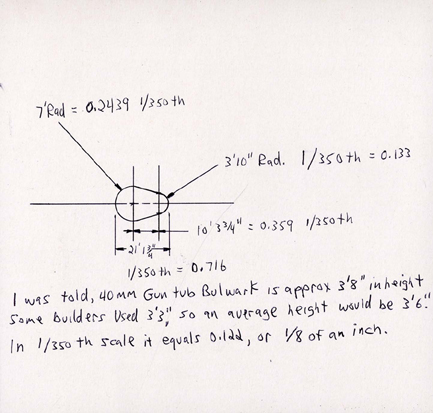 7'Rad = 0.2439 1/350th
3'10" Rad. 1/350th = 0.133
10' 3 3/4" = 0.359 1/350th
21' 1 3/4"
1/350th = 0.716
I was told, 40mm Gun tub Bulwark is approx 3'8" in height
Some builders Used 3'3", so an average height would be 3'6".
In 1/350th scale it equals 0.122, or 1/8 of an inch.